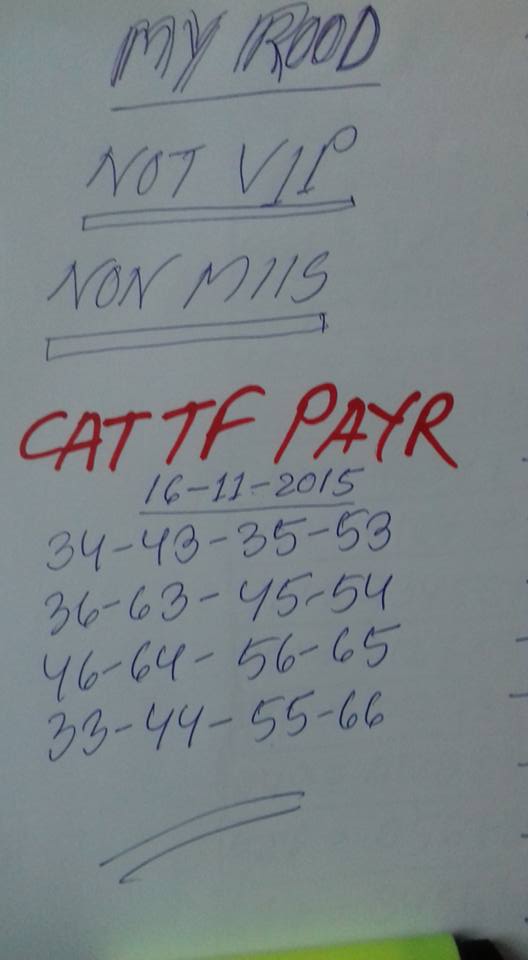 MY ROOD
NOT VIP
NON MIIS
CAT TF PAYR
16-11-2015
34-43-35-53
36-63-45-54
46-64-56-65
33-44-55-66